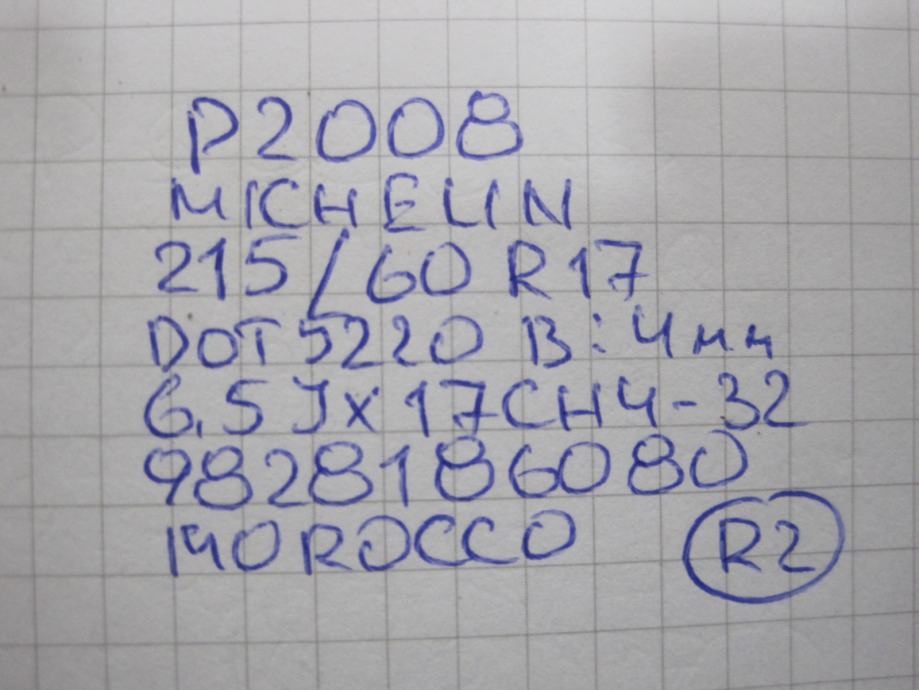 P2008
MICHELIN
215/60 R17
DOT5220 B:4мм
6.5Jx17CH4-32
9828186080
MOROCCO R2